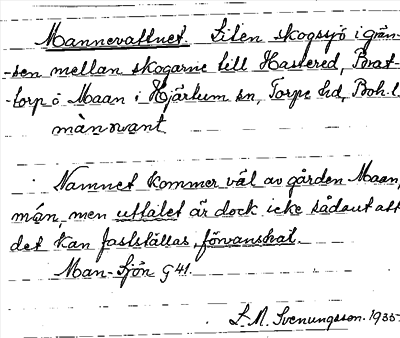 Mannevattnet. Liten skogssjö i grän-
-sen mellan skogarne till Hastered, Porat-
-torp o Maan i Hjärtum sn, Torpe hd, Boh. l.
mànnvant
Namnet kommer väl av gården Maan,
mán, men uttalet är dock icke sådant att
det kan fastställas, förvanskat.
Man-Sjön G 41.
L. M. Svenungsson. 1935.